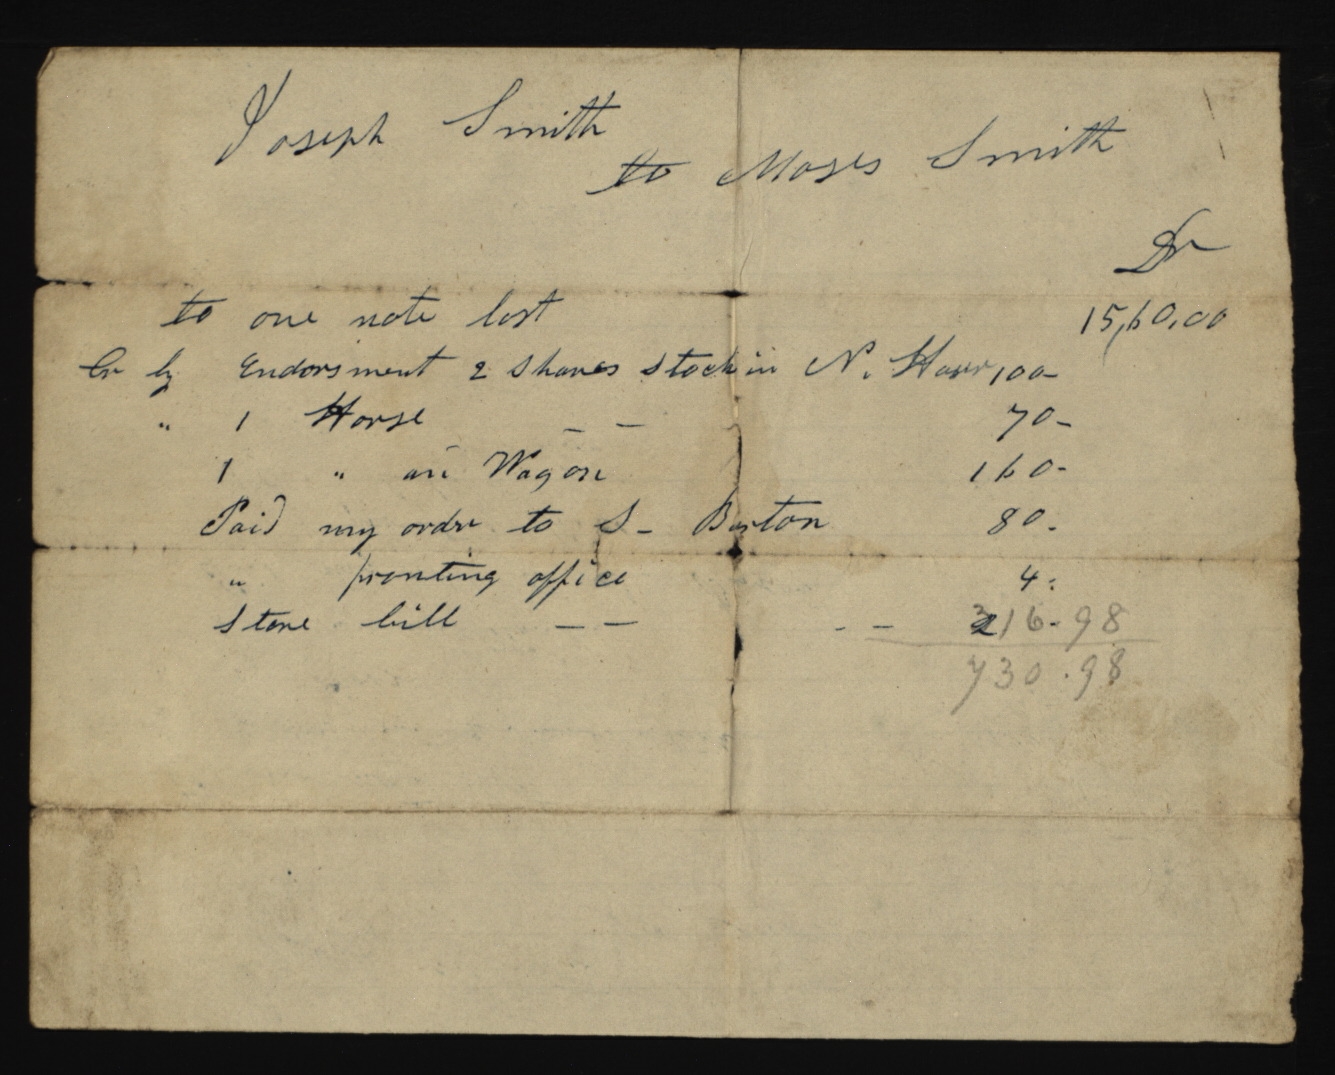 Joseph Smith
to Moses Smith
Dr
to one note lost 15,60.00
Cr by Endorsment 2 shares stock in N. Haus 100-
" 1 Horse - - 70-
1 " an Wagon 160-
Paid my order to S- Burton 80-
" printing office 4:
Store bill - - - - 316.98
730.98